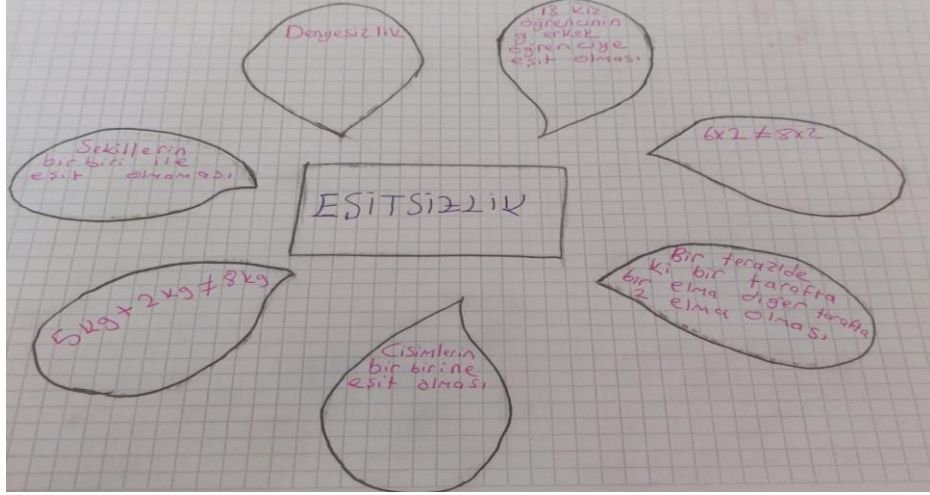 Dengesizlik
13 kız
öğrencinin
9 erkek
öğrenciye
eşit olması
Şekillerin
bir biri ile
eşit olmaması
6x2 ≠ 8x2
EŞİTSİZLİK
Bir terazide
ki bir tarafta
bir elma diğer tarafta
2 elma olması
5kg + 2kg ≠ 8kg
Cisimlerin
bir birine
eşit olması